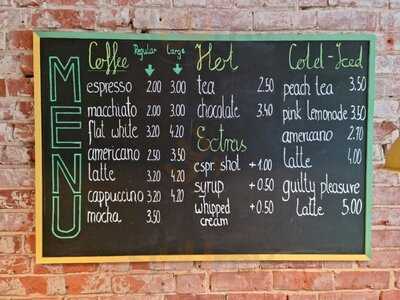 MENU
Coffee Regular Large
espresso 2.00 3.00
macchiato 2.00 3.00
flat white 3.20 4.20
americano 2.50 3.50
latte 3.20 4.20
cappuccino 3.20 4.20
mocha 3.50
Hot
tea 2.50
chocolate 3.40
Extras
espr. shot +1.00
syrup +0.50
whipped +0.50
cream
Cold-Iced
peach tea 3.50
pink lemonade 3.50
americano 2.70
latte 4.00
guilty pleasure
latte 5.00